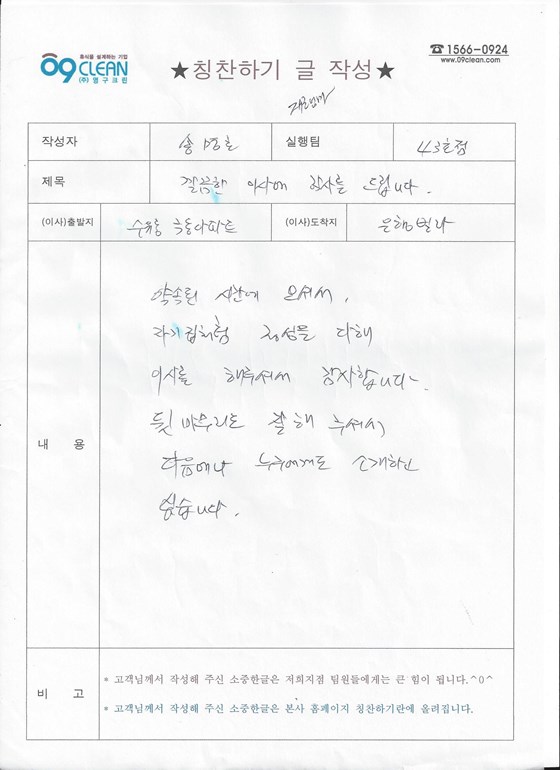 휴식을 설계하는 기업
09CLEAN
(주)영구크린
★칭찬하기 글 작성★
☎1566-0924
www.09clean.com
작성자 송 실행팀 43호점
제목 깔끔한 이사에 감사를 드립니다.
(이사)출발지 수유동 극동아파트 (이사)도착지 은행빌라
내 용
약속된 시간에 오셔서,
자기집처럼 정성을 다해
이사를 해주셔서 감사합니다.
뒷마무리도 잘 해 주셔서
다음에나 누구에게도 소개하고
싶습니다.
비 고
* 고객님께서 작성해 주신 소중한글은 저희지점 팀원들에게는 큰 힘이 됩니다.^0^
* 고객님께서 작성해 주신 소중한글은 본사 홈페이지 칭찬하기란에 올려집니다.